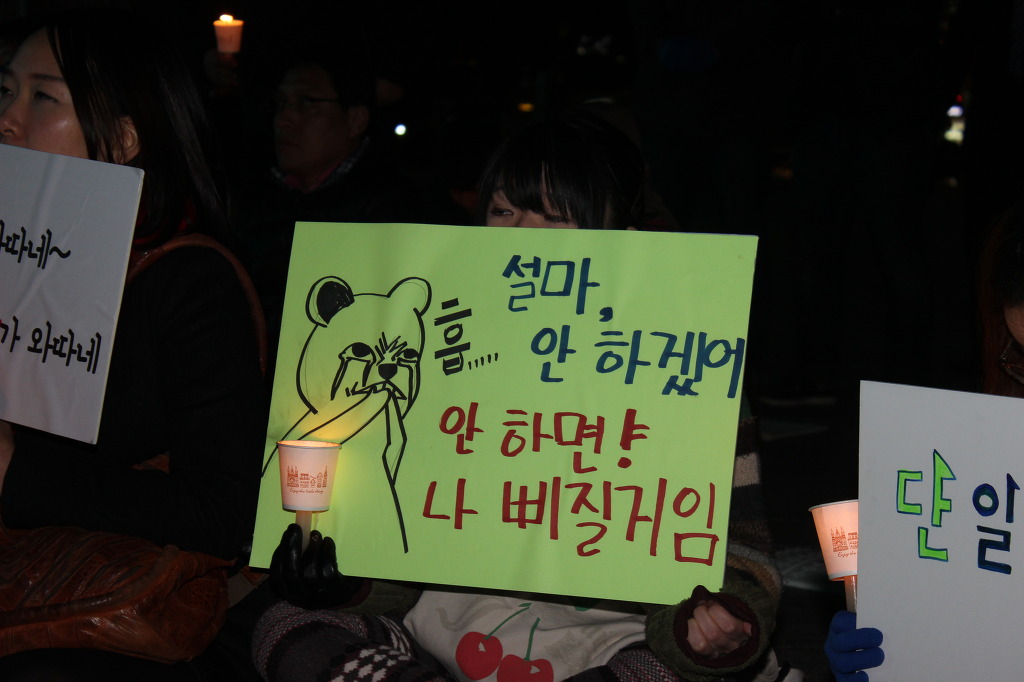 따네~
가 와따네
흡.....
설마,
안 하겠어
안 하면, 
나 삐질거임
단 알